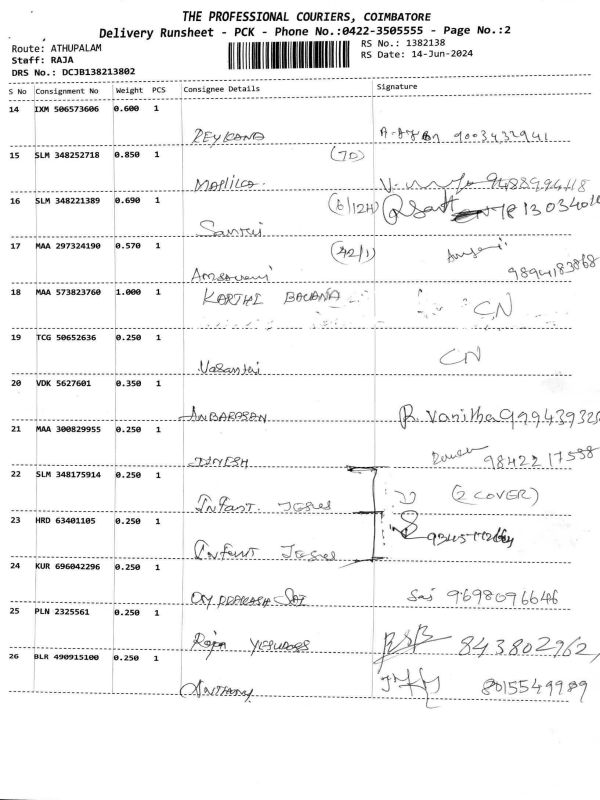 THE PROFESSIONAL COURIERS, COIMBATORE
Delivery Runsheet - PCK - Phone No.:0422-3505555 - Page No.:2
Route: ATHUPALAM
RS No.: 1382138
Staff: RAJA
RS Date: 14-Jun-2024
DRS No.: DCJB138213802
S No Consignment No Weight PCS Consignee Details Signature
14 IXM 506573606 0.600 1
9003432941
15 SLM 348252718 0.850 1 (7D)
9488994418
16 SLM 348221389 0.690 1 (6/12A)
17 MAA 297324190 0.570 1 (42/1)
9894183868
18 MAA 573823760 1.000 1 KARTHI BAVANA CN
19 TCG 50652636 0.250 1 CN
Vasantai
20 VDK 5627601 0.350 1
ANBARASAN R. Vanitha
21 MAA 300829955 0.250 1
DINESH 9842217558
22 SLM 348175914 0.250 1 (2 COVER)
Infant. Jesues
23 HRD 63401105 0.250 1
Infant Jesues
24 KUR 696042296 0.250 1
OM PRAKASH SAI Sai 9698096646
25 PLN 2325561 0.250 1
Raja
26 BLR 490915100 0.250 1
ANTHONY 8015549989